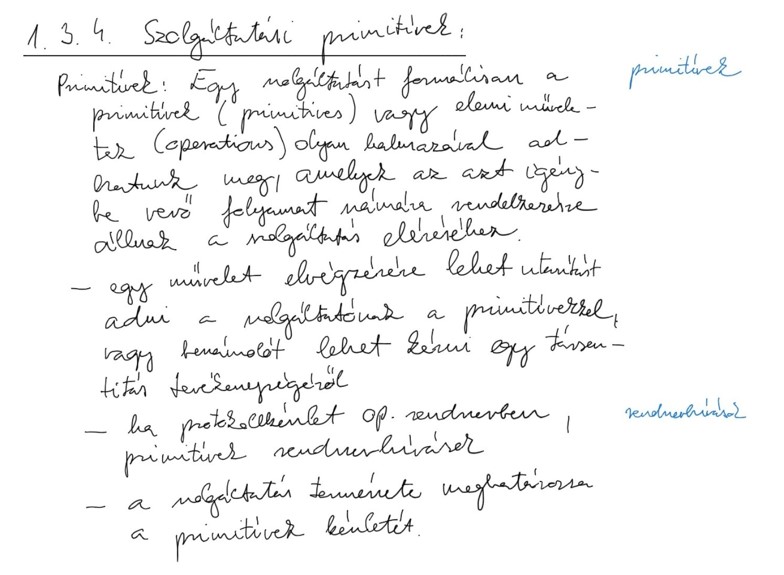 1. 3. 4. Szolgáltatási primitívek:
Primitívek: Egy szolgáltatást formálisan a
primitívek
primitívek (primitives) vagy elemi művele-
tek (operations) olyan halmazával ad-
hatunk meg, amelyek az azt igény-
be vevő folyamat számára rendelkezésre
állnak a szolgáltatás eléréséhez.
– egy művelet elvégzésére lehet utasítást
adni a szolgáltatónak a primitívekkel,
vagy beszámolót lehet kérni egy társen-
titás tevékenységéről
– ha protokollkészlet op. rendszerben,
rendszerhívások
primitívek rendszerhívások
– a szolgáltatás természete meghatározza
a primitívek készletét.